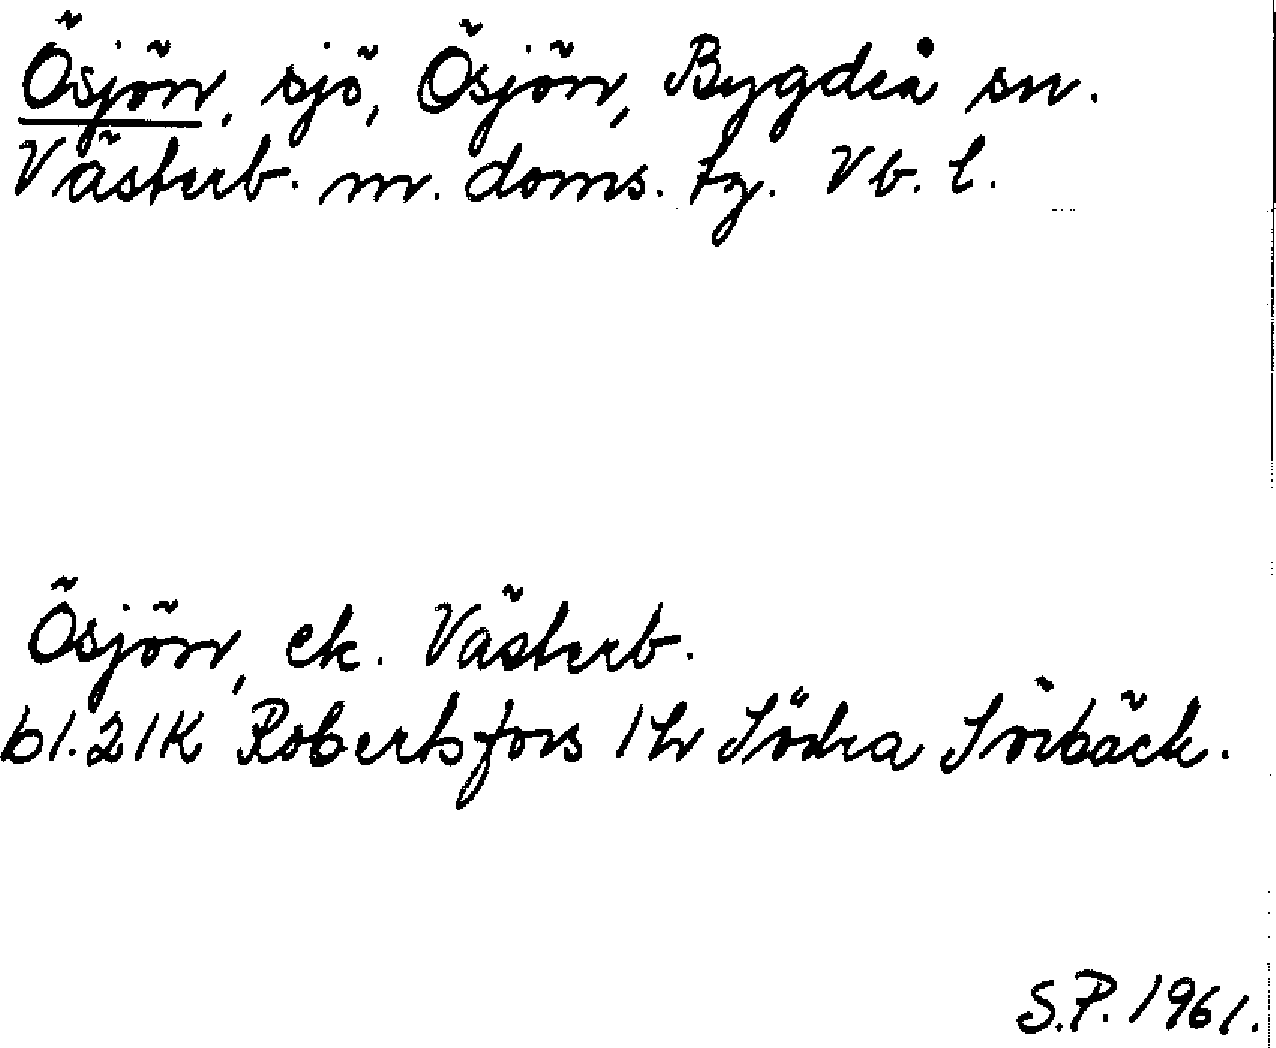 Ösjön, sjö, Ösjön, Bygdeå sn.
Västerb. m. doms. tg. Vb. l.
Ösjön, ek. Västerb.
bl. 21K Robertsfors 1 hv Södra Sörbäck.
S.P. 1961.